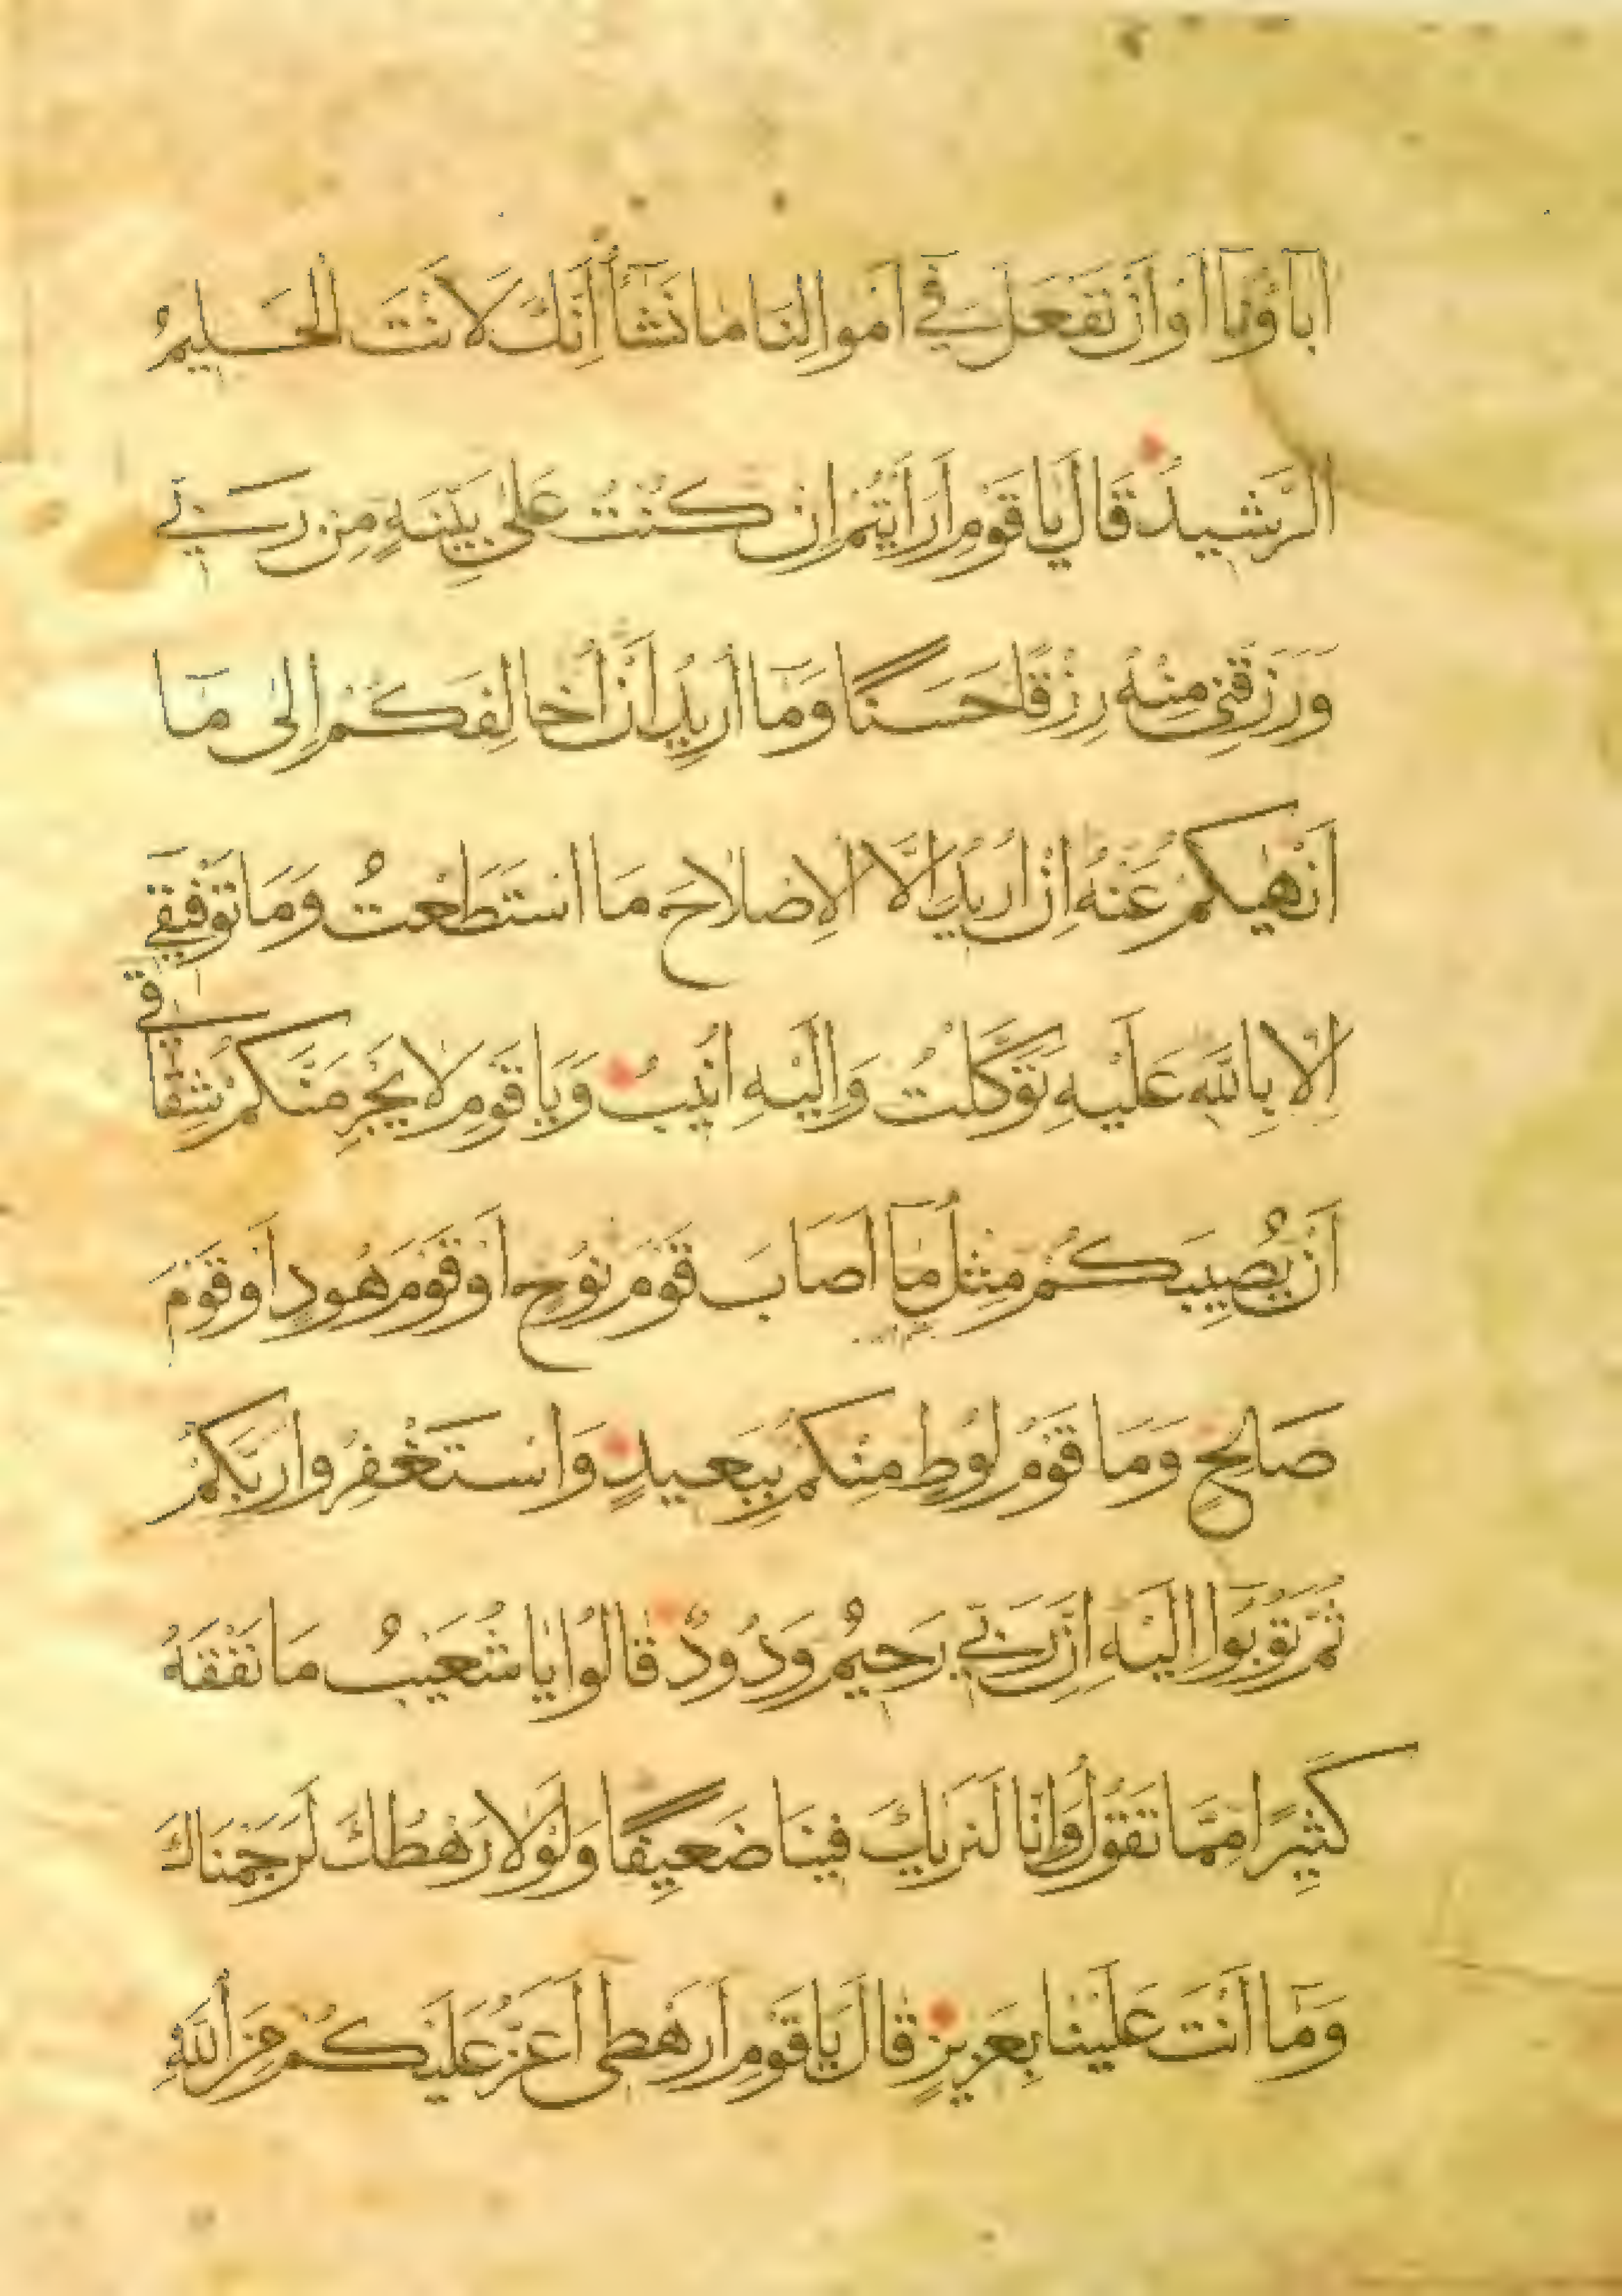 اٰبَآؤُنَآ اَوْ اَنْ نَفْعَلَ فِي اَمْوَالِنَا مَا نَشَآءُ اِنَّكَ لَاَنْتَ الْحَلِيمُ
الرَّشِيدُ قَالَ يَا قَوْمِ اَرَاَيْتُمْ اِنْ كُنْتُ عَلٰى بَيِّنَةٍ مِنْ رَبِّي
وَرَزَقَنِي مِنْهُ رِزْقًا حَسَنًا وَمَٓا اُرِيدُ اَنْ اُخَالِفَكُمْ اِلٰى مَٓا
اَنْهٰيكُمْ عَنْهُ اِنْ اُرِيدُ اِلَّا الْاِصْلَاحَ مَا اسْتَطَعْتُ وَمَا تَوْفِيقِي
اِلَّا بِاللّٰهِ عَلَيْهِ تَوَكَّلْتُ وَاِلَيْهِ اُنِيبُ وَيَا قَوْمِ لَا يَجْرِمَنَّكُمْ شِقَاقِي
اَنْ يُصِيبَكُمْ مِثْلُ مَٓا اَصَابَ قَوْمَ نُوحٍ اَوْ قَوْمَ هُودٍ اَوْ قَوْمَ
صَالِحٍ وَمَا قَوْمُ لُوطٍ مِنْكُمْ بِبَعِيدٍ وَاسْتَغْفِرُوا رَبَّكُمْ
ثُمَّ تُوبُوا اِلَيْهِ اِنَّ رَبِّي رَحِيمٌ وَدُودٌ قَالُوا يَا شُعَيْبُ مَا نَفْقَهُ
كَثِيرًا مِمَّا تَقُولُ وَاِنَّا لَنَرٰيكَ فِينَا ضَعِيفًا وَلَوْلَا رَهْطُكَ لَرَجَمْنَاكَ
وَمَٓا اَنْتَ عَلَيْنَا بِعَزِيزٍ قَالَ يَا قَوْمِ اَرَهْطِي اَعَزُّ عَلَيْكُمْ مِنَ اللّٰهِ